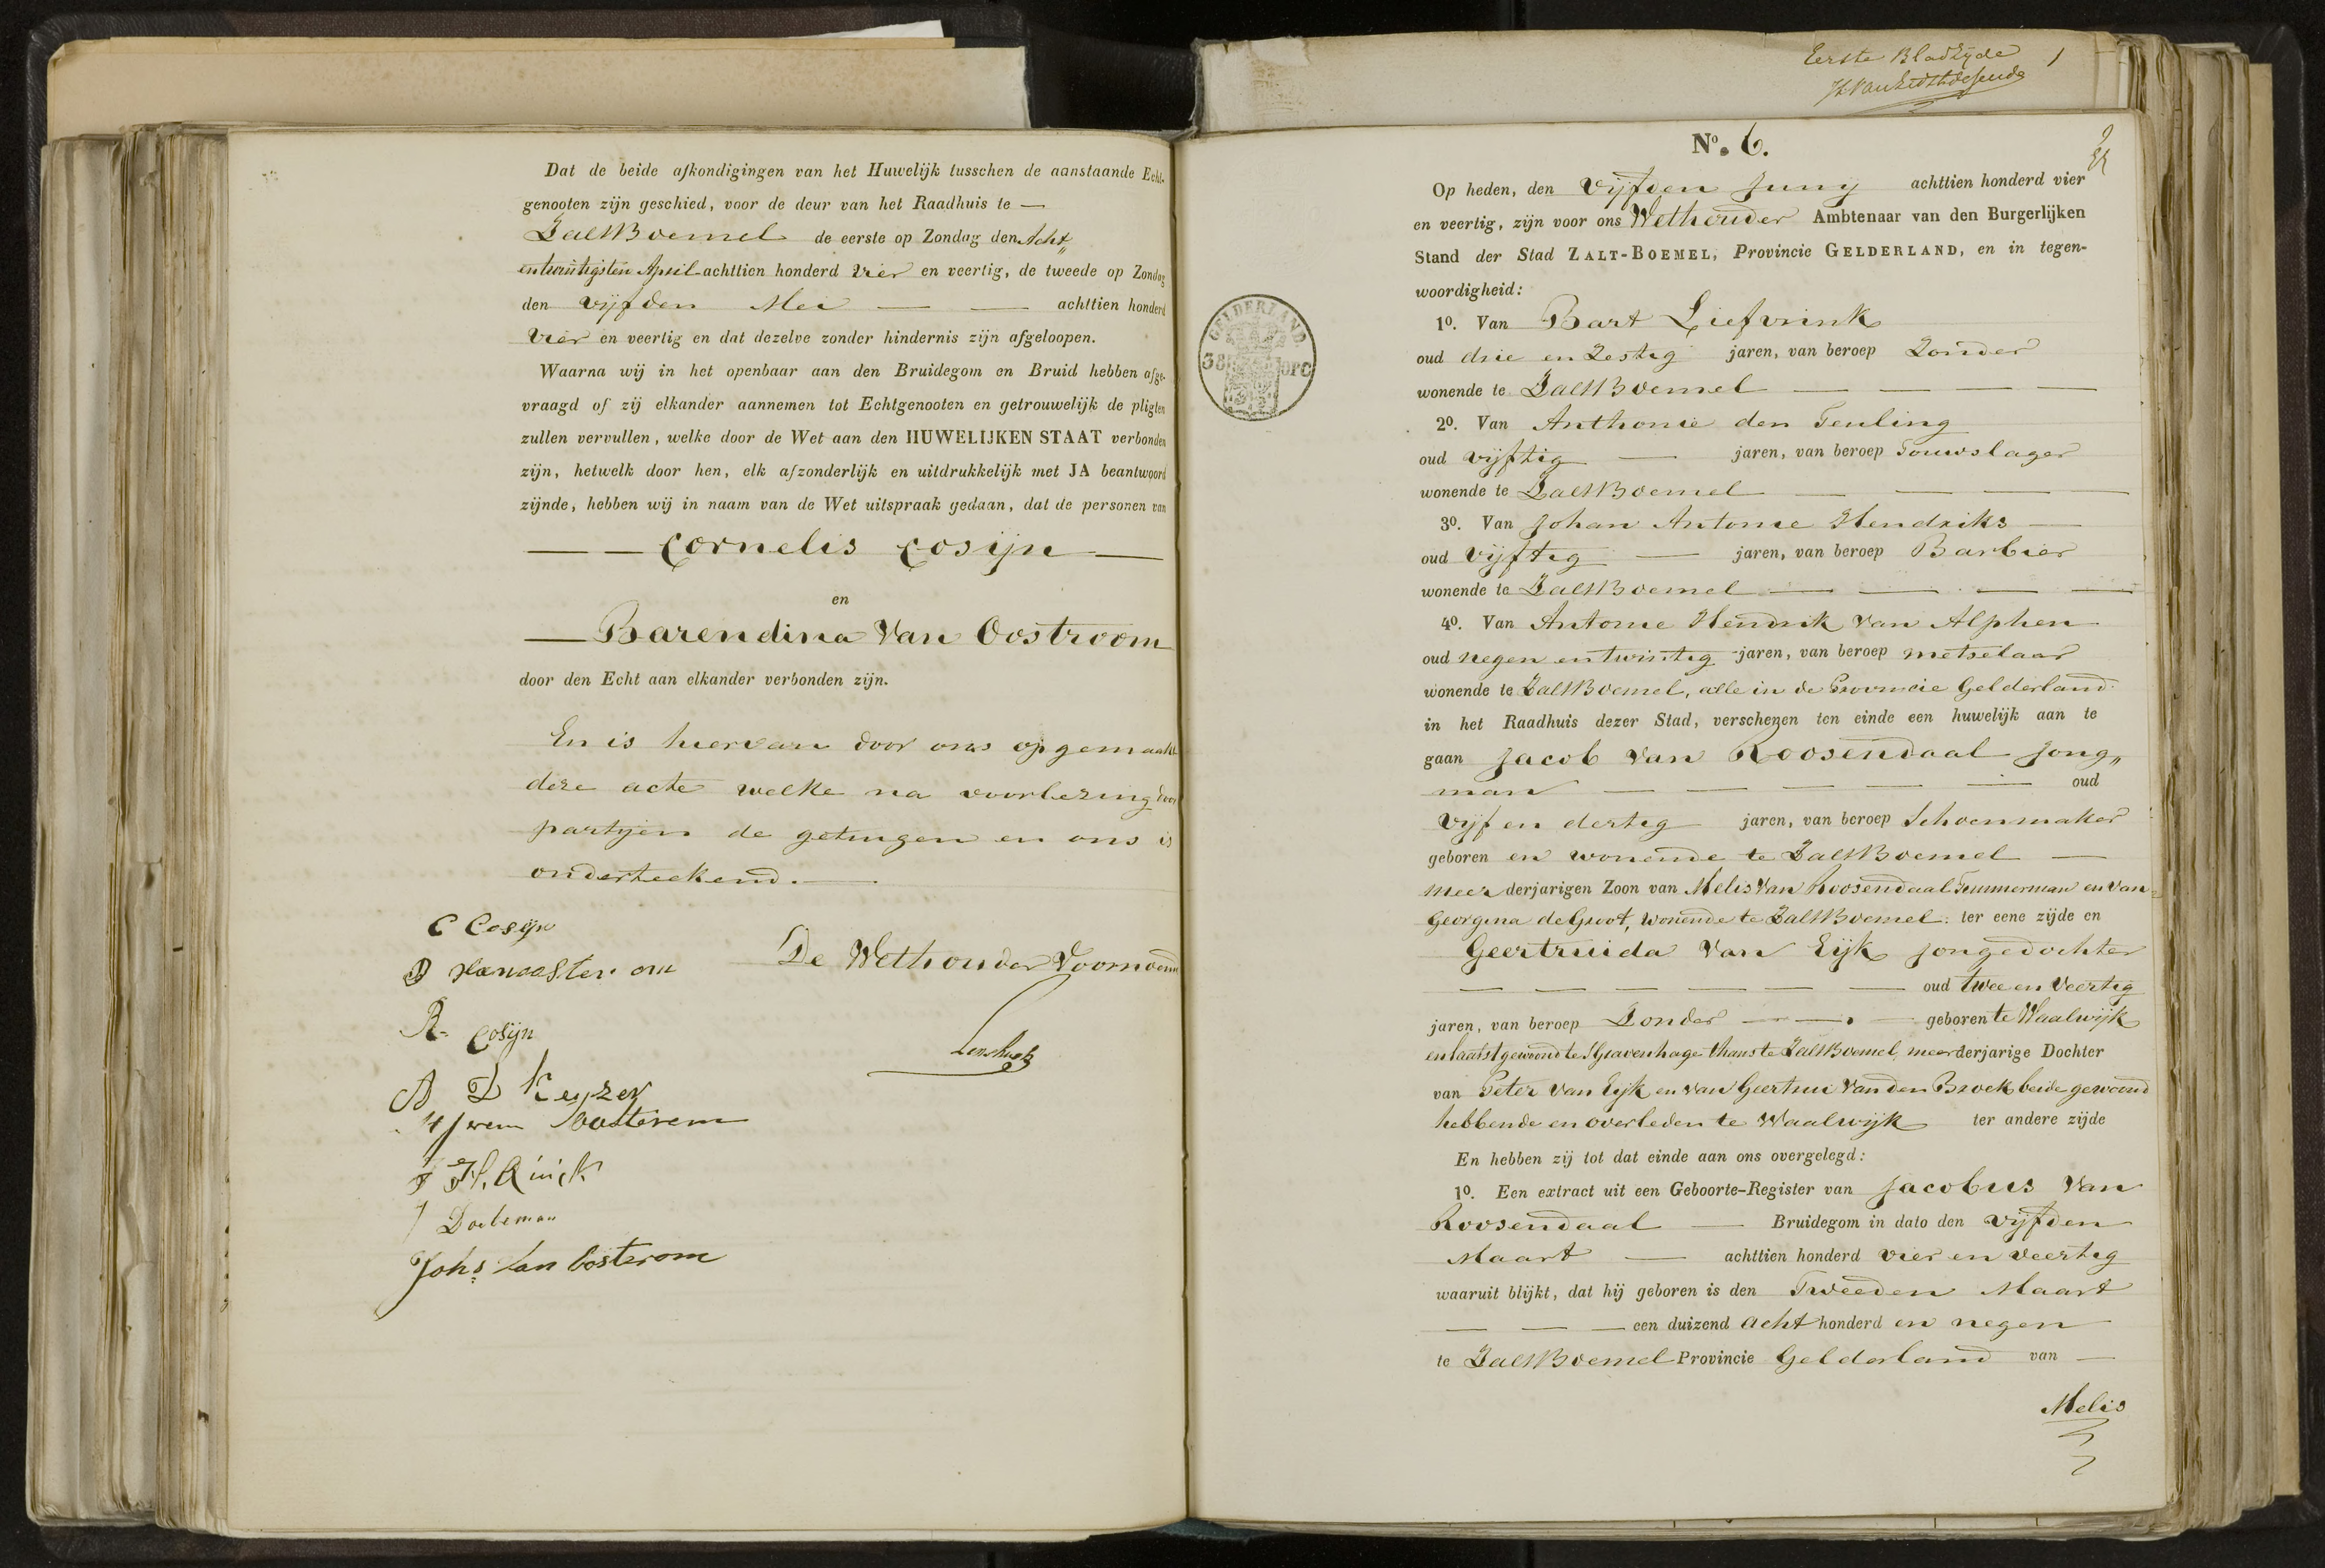 Dat de beide afkondigingen van het Huwelijk tusschen de aanstaande Echt-
genooten zijn geschied, voor de deur van het Raadhuis te —
ZaltBoemel de eerste op Zondag den Acht„
entwintigsten April achttien honderd vier en veertig, de tweede op Zondag
den vijfden Mei — — achttien honderd
vier en veertig en dat dezelve zonder hindernis zijn afgeloopen.
Waarna wij in het openbaar aan den Bruidegom en Bruid hebben afge-
vraagd of zij elkander aannemen tot Echtgenooten en getrouwelijk de pligten
zullen vervullen, welke door de Wet aan den HUWELIJKEN STAAT verbonden
zijn, hetwelk door hen, elk afzonderlijk en uitdrukkelijk met JA beantwoord
zijnde, hebben wij in naam van de Wet uitspraak gedaan, dat de personen van
— — Cornelis Cosijn —
en
— Barendina Van Oostroom
door den Echt aan elkander verbonden zijn.
En is hiervan door ons opgemaakt
deze acte welke na voorlezing door
partijen de getuigen en ons is
onderteekend. —
C Cosijn
De Wethouder Voornoemd
R. Cosijn
A D Keyzer
Oosterom
H. Quick
Joh.s Van Oosterom
Eerste Bladzijde 1
No. 6.
2
Op heden, den vijfden Juny achttien honderd vier
en veertig, zijn voor ons Wethouder Ambtenaar van den Burgerlijken
Stand der Stad ZALT-BOEMEL, Provincie GELDERLAND, en in tegen-
woordigheid:
GELDERLAND
38 OPC
1o. Van Bart Liefvrink
oud drie en Zestig jaren, van beroep Zonder
wonende te ZaltBoemel — — — —
2o. Van Anthonie den Teuling
oud vijftig — jaren, van beroep Touwslager
wonende te ZaltBoemel — — — —
3o. Van Johan Antonie Hendriks —
oud vijftig — jaren, van beroep Barbier
wonende te ZaltBoemel — — — —
4o. Van Antonie Hendrik van Alphen
oud negen entwintig jaren, van beroep metselaar
wonende te ZaltBoemel, alle in de Provincie Gelderland
in het Raadhuis dezer Stad, verschenen ten einde een huwelijk aan te
gaan Jacob van Roosendaal Jong„
man — — — — — oud
Vijf en dertig jaren, van beroep Schoenmaker
geboren en wonende te ZaltBoemel —
meer derjarigen Zoon van Melis Van Roosendaal Temmerman en van
Georgina de Groot, wonende te ZaltBoemel. ter eene zijde en
Geertruida Van Eijk jongedochter
— — — — — — oud twee en Veertig
jaren, van beroep Zonder — — . — geboren te Waalwijk
en laatst gewoond te 'sGravenhage thans te ZaltBoemel, meerderjarige Dochter
van Peter Van Eijk en van Geertrui Van den Broek beide gewoond
hebbende en overleden te Waalwijk ter andere zijde
En hebben zij tot dat einde aan ons overgelegd:
1o. Een extract uit een Geboorte-Register van Jacobus Van
Roosendaal — Bruidegom in dato den vijfden
Maart — achttien honderd vier en veertig
waaruit blijkt, dat hij geboren is den Tweeden Maart
— — — een duizend acht honderd en negen
te ZaltBoemel Provincie Gelderland van —
Melis